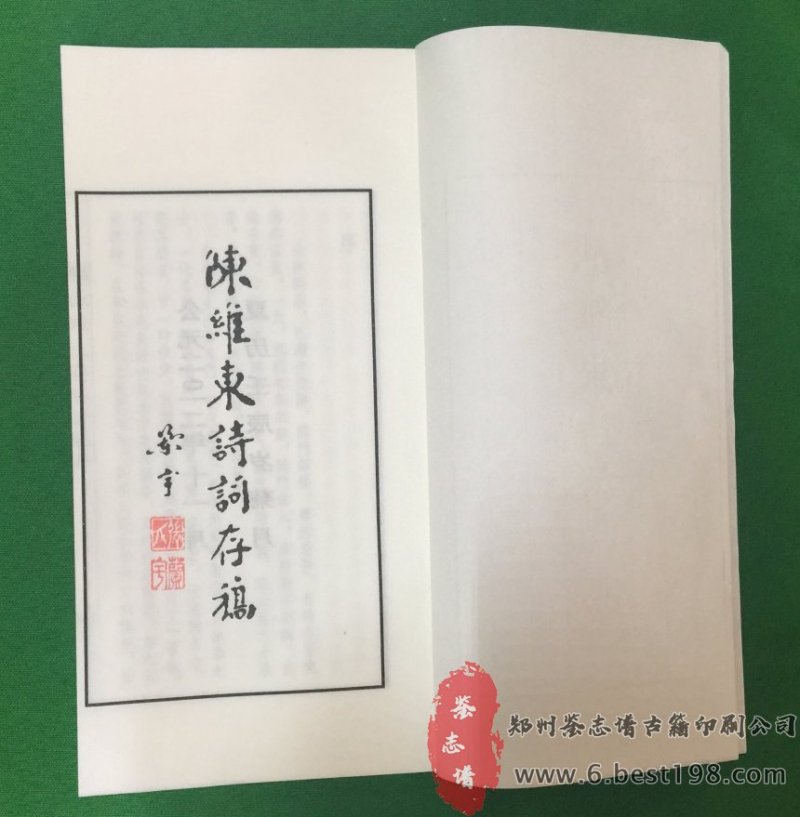 陳維東詩詞存稿
鉴志谱
郑州鉴志谱古籍印刷公司
www.6.best198.com